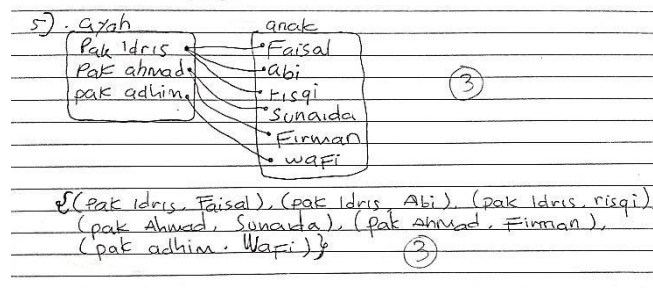 5). ayah anak
Pak Idris Faisal
Pak ahmad abi
pak adhim risqi
Sunaida
Firman
wafi
3
{(Pak Idris, Faisal), (pak Idris, Abi), (pak Idris, risqi)
(pak Ahmad, Sunaida), (pak Ahmad, Firman),
(pak adhim, Wafi)}
3